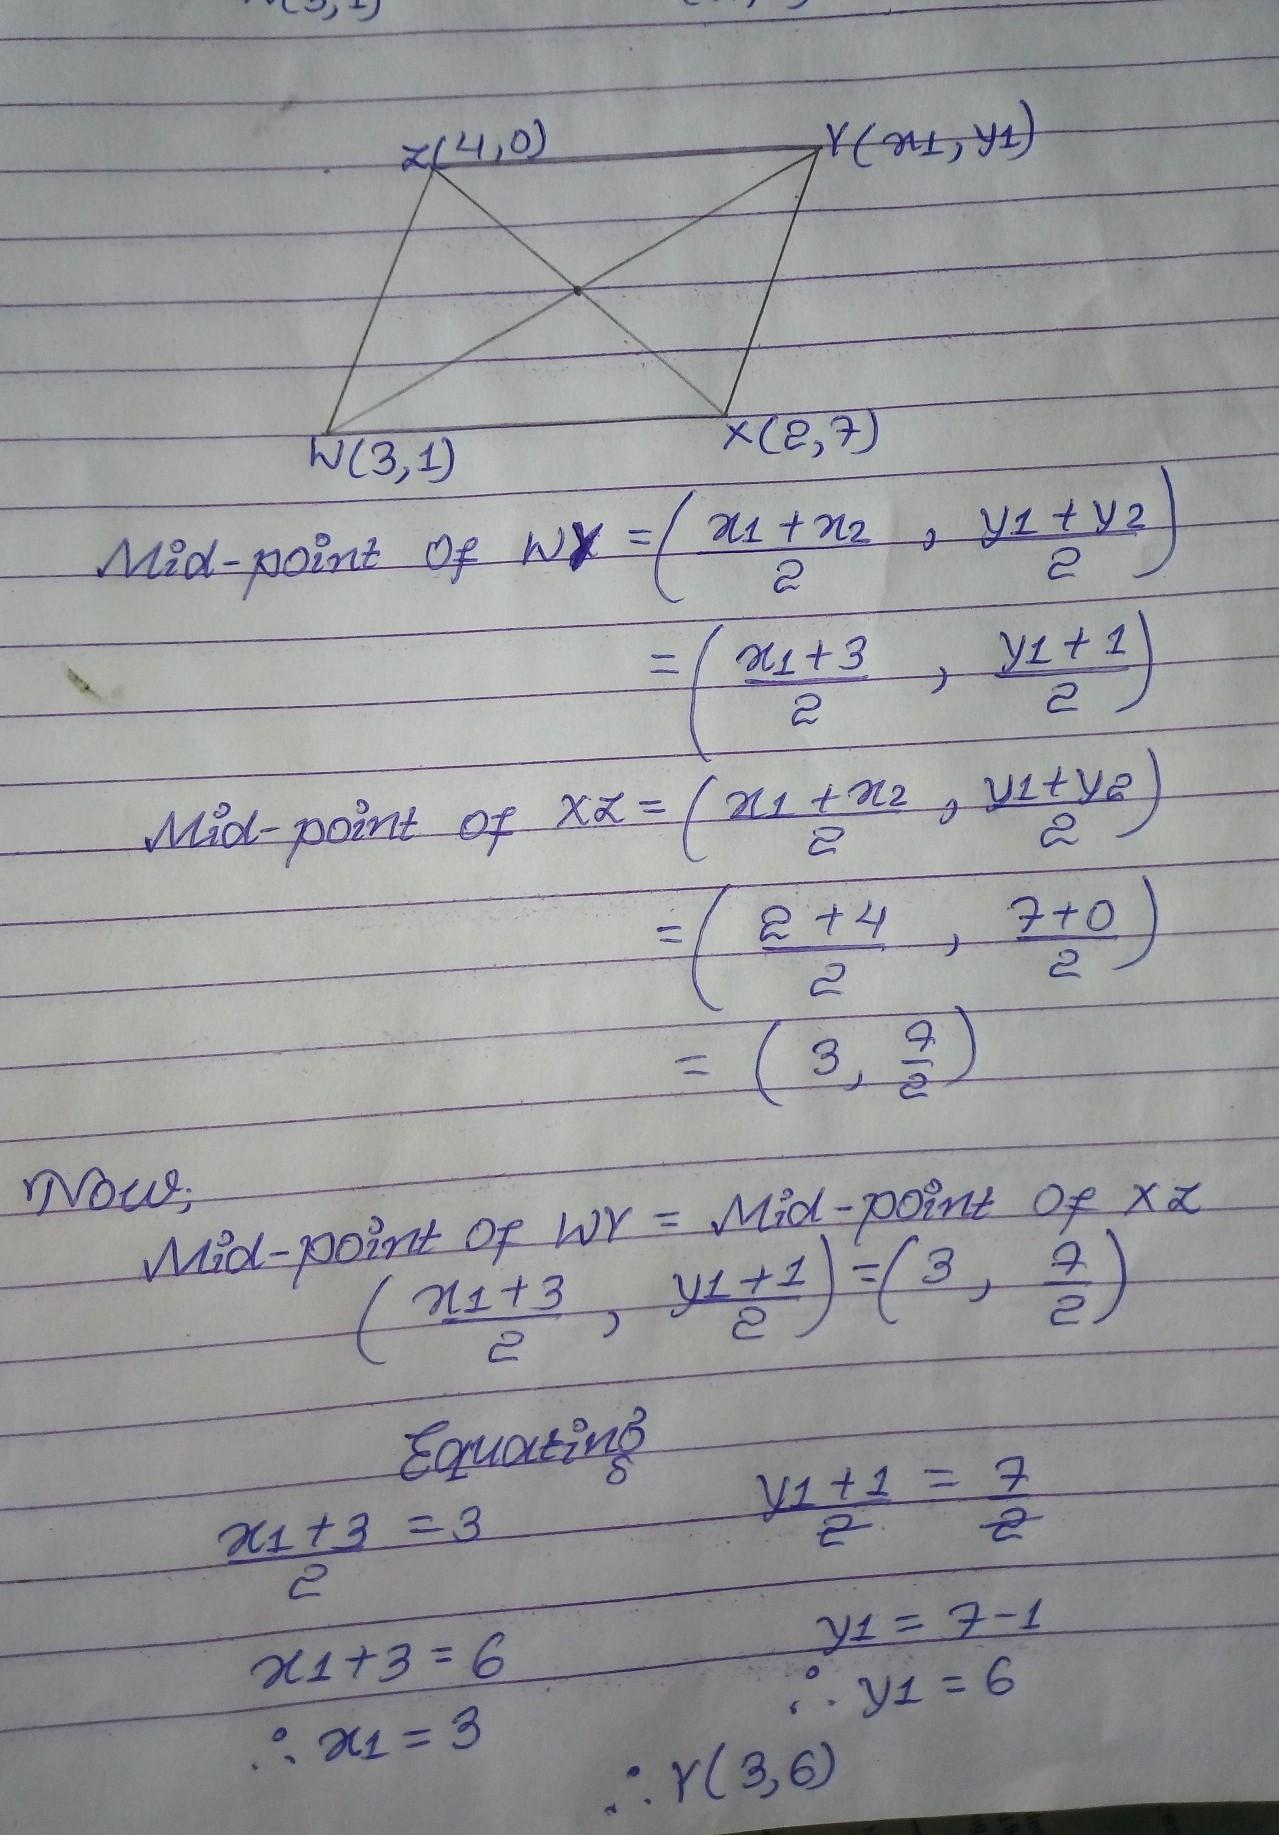 (3,1)
Z(4,0) Y(x1, y1)
W(3,1) X(2,7)
Mid-point Of WY = (x1+x2/2, y1+y2/2)
= (x1+3/2, y1+1/2)
Mid-point of XZ = (x1+x2/2, y1+y2/2)
= (2+4/2, 7+0/2)
= (3, 7/2)
Now,
Mid-point Of WY = Mid-point Of XZ
(x1+3/2, y1+1/2) = (3, 7/2)
Equating
x1+3/2 = 3 y1+1/2 = 7/2
x1+3 = 6 y1 = 7-1
∴ x1 = 3 ∴ y1 = 6
∴ Y(3,6)